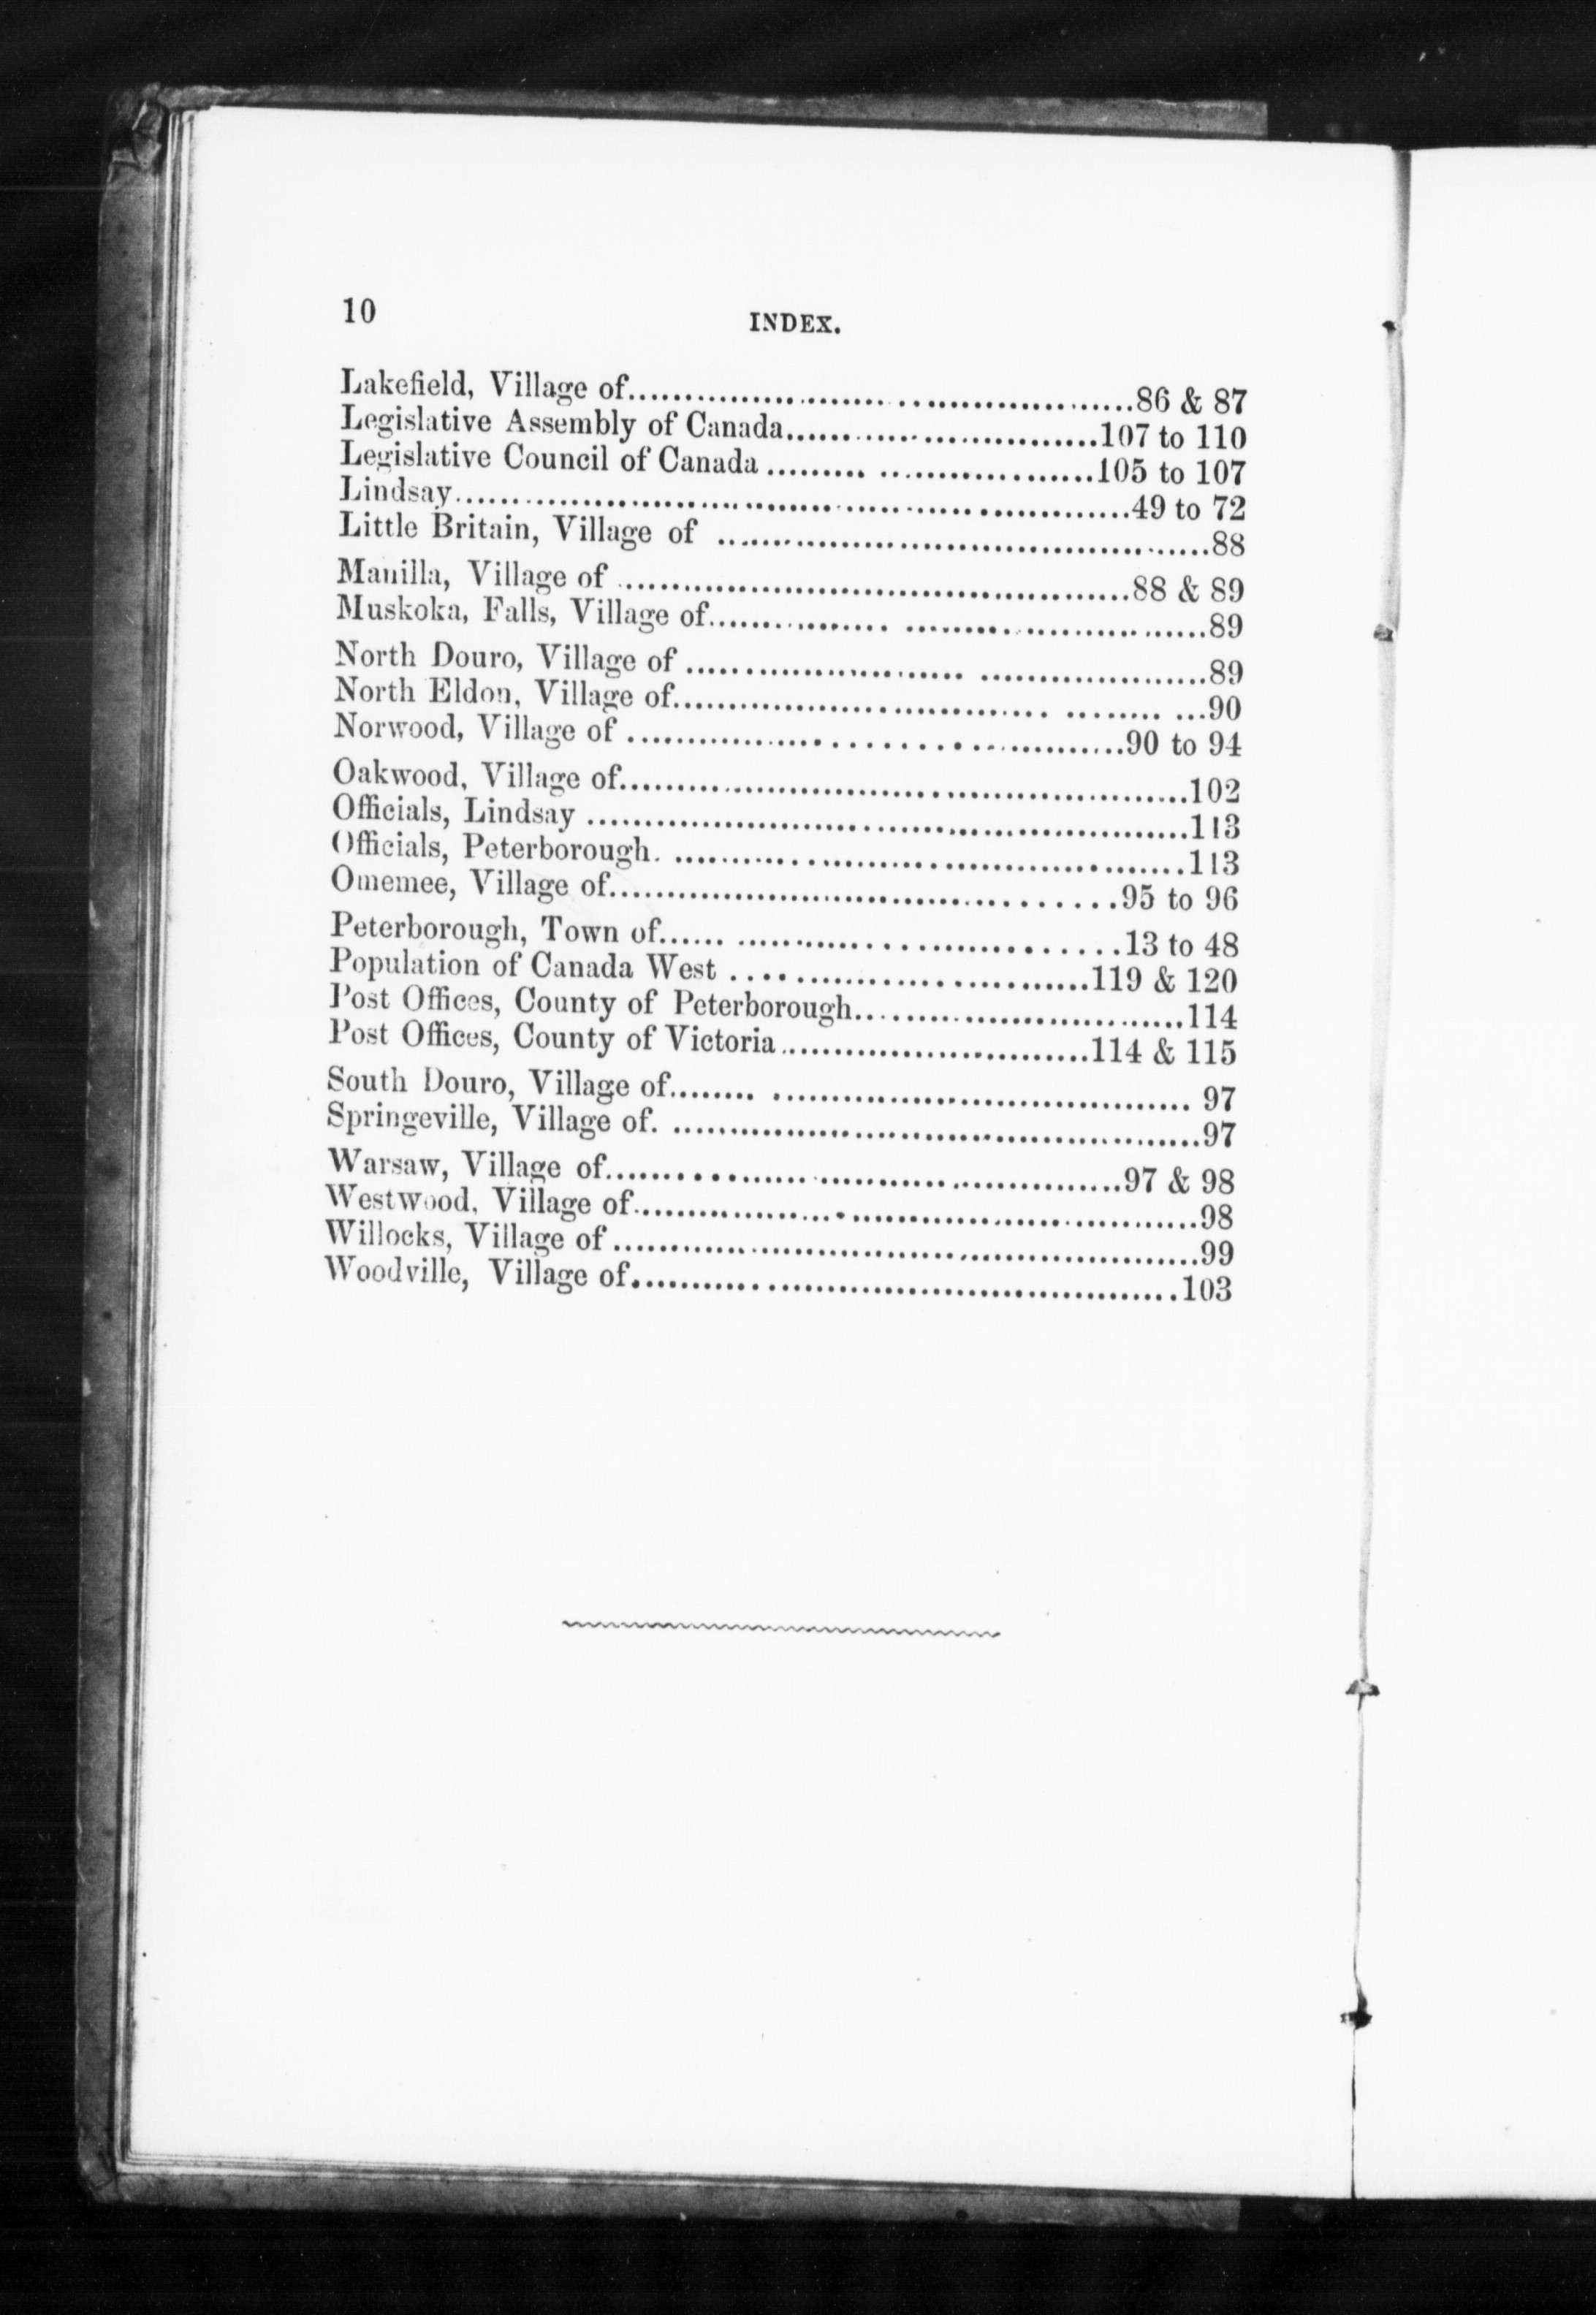 10
INDEX.
Lakefield, Village of..............................................86 & 87
Legislative Assembly of Canada..............................107 to 110
Legislative Council of Canada ..............................105 to 107
Lindsay..............................................................49 to 72
Little Britain, Village of ..............................................88
Manilla, Village of ..............................................88 & 89
Muskoka, Falls, Village of..............................................89
North Douro, Village of ..............................................89
North Eldon, Village of..............................................90
Norwood, Village of ..............................................90 to 94
Oakwood, Village of..............................................102
Officials, Lindsay ..............................................113
Officials, Peterborough. ..............................................113
Omemee, Village of..............................................95 to 96
Peterborough, Town of..............................................13 to 48
Population of Canada West ..............................119 & 120
Post Offices, County of Peterborough..............................114
Post Offices, County of Victoria..............................114 & 115
South Douro, Village of.............................................. 97
Springeville, Village of. ..............................................97
Warsaw, Village of..............................................97 & 98
Westwood, Village of..............................................98
Willocks, Village of ..............................................99
Woodville, Village of..............................................103